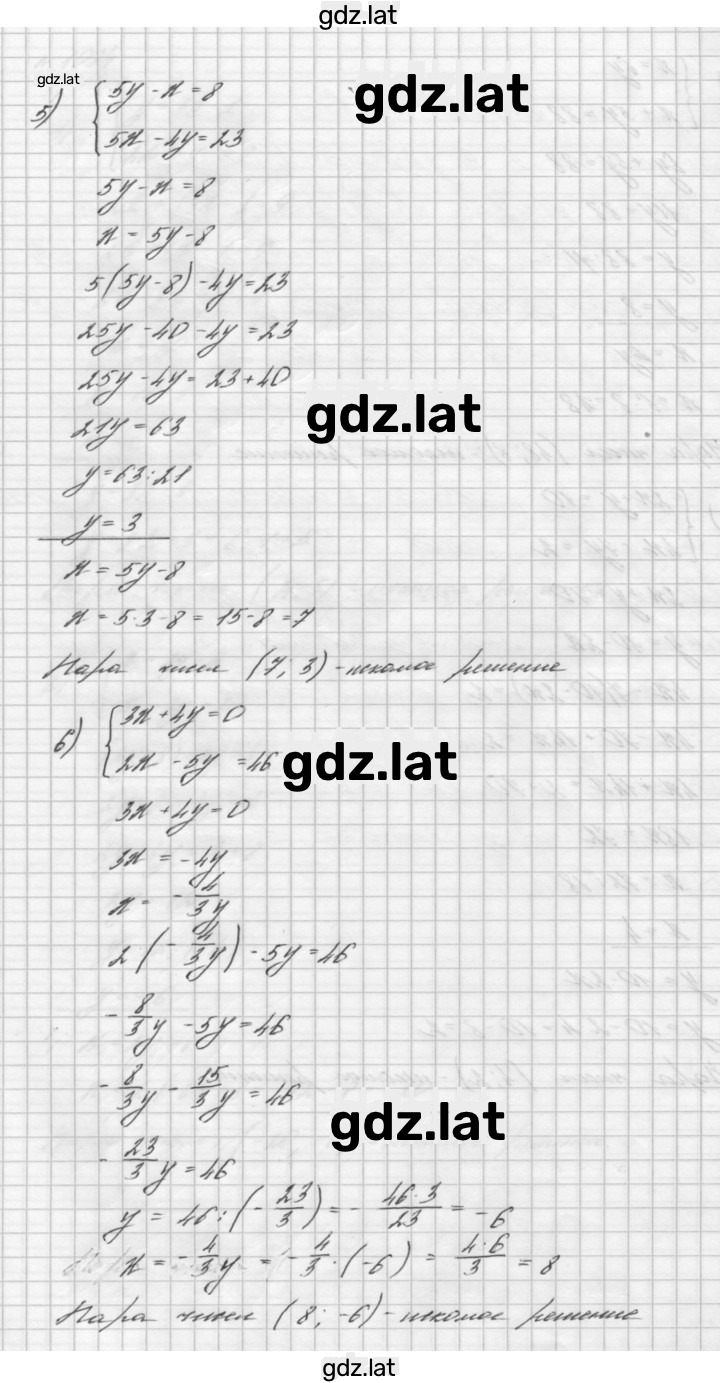 gdz.lat
gdz.lat
gdz.lat
5) { 5y - x = 8
5x - 4y = 23
5y - x = 8
x = 5y - 8
5(5y - 8) - 4y = 23
25y - 40 - 4y = 23
25y - 4y = 23 + 40
gdz.lat
21y = 63
y = 63 : 21
y = 3
x = 5y - 8
x = 5·3 - 8 = 15 - 8 = 7
Пара чисел (7; 3) - искомое решение
6) { 3x + 4y = 0
2x - 5y = 46
gdz.lat
3x + 4y = 0
3x = -4y
x = - 4/3 y
2(- 4/3 y) - 5y = 46
- 8/3 y - 5y = 46
- 8/3 y - 15/3 y = 46
gdz.lat
- 23/3 y = 46
y = 46 : (- 23/3) = - 46·3/23 = -6
x = - 4/3 y = - 4/3 · (-6) = 4·6/3 = 8
Пара чисел (8; -6) - искомое решение
gdz.lat